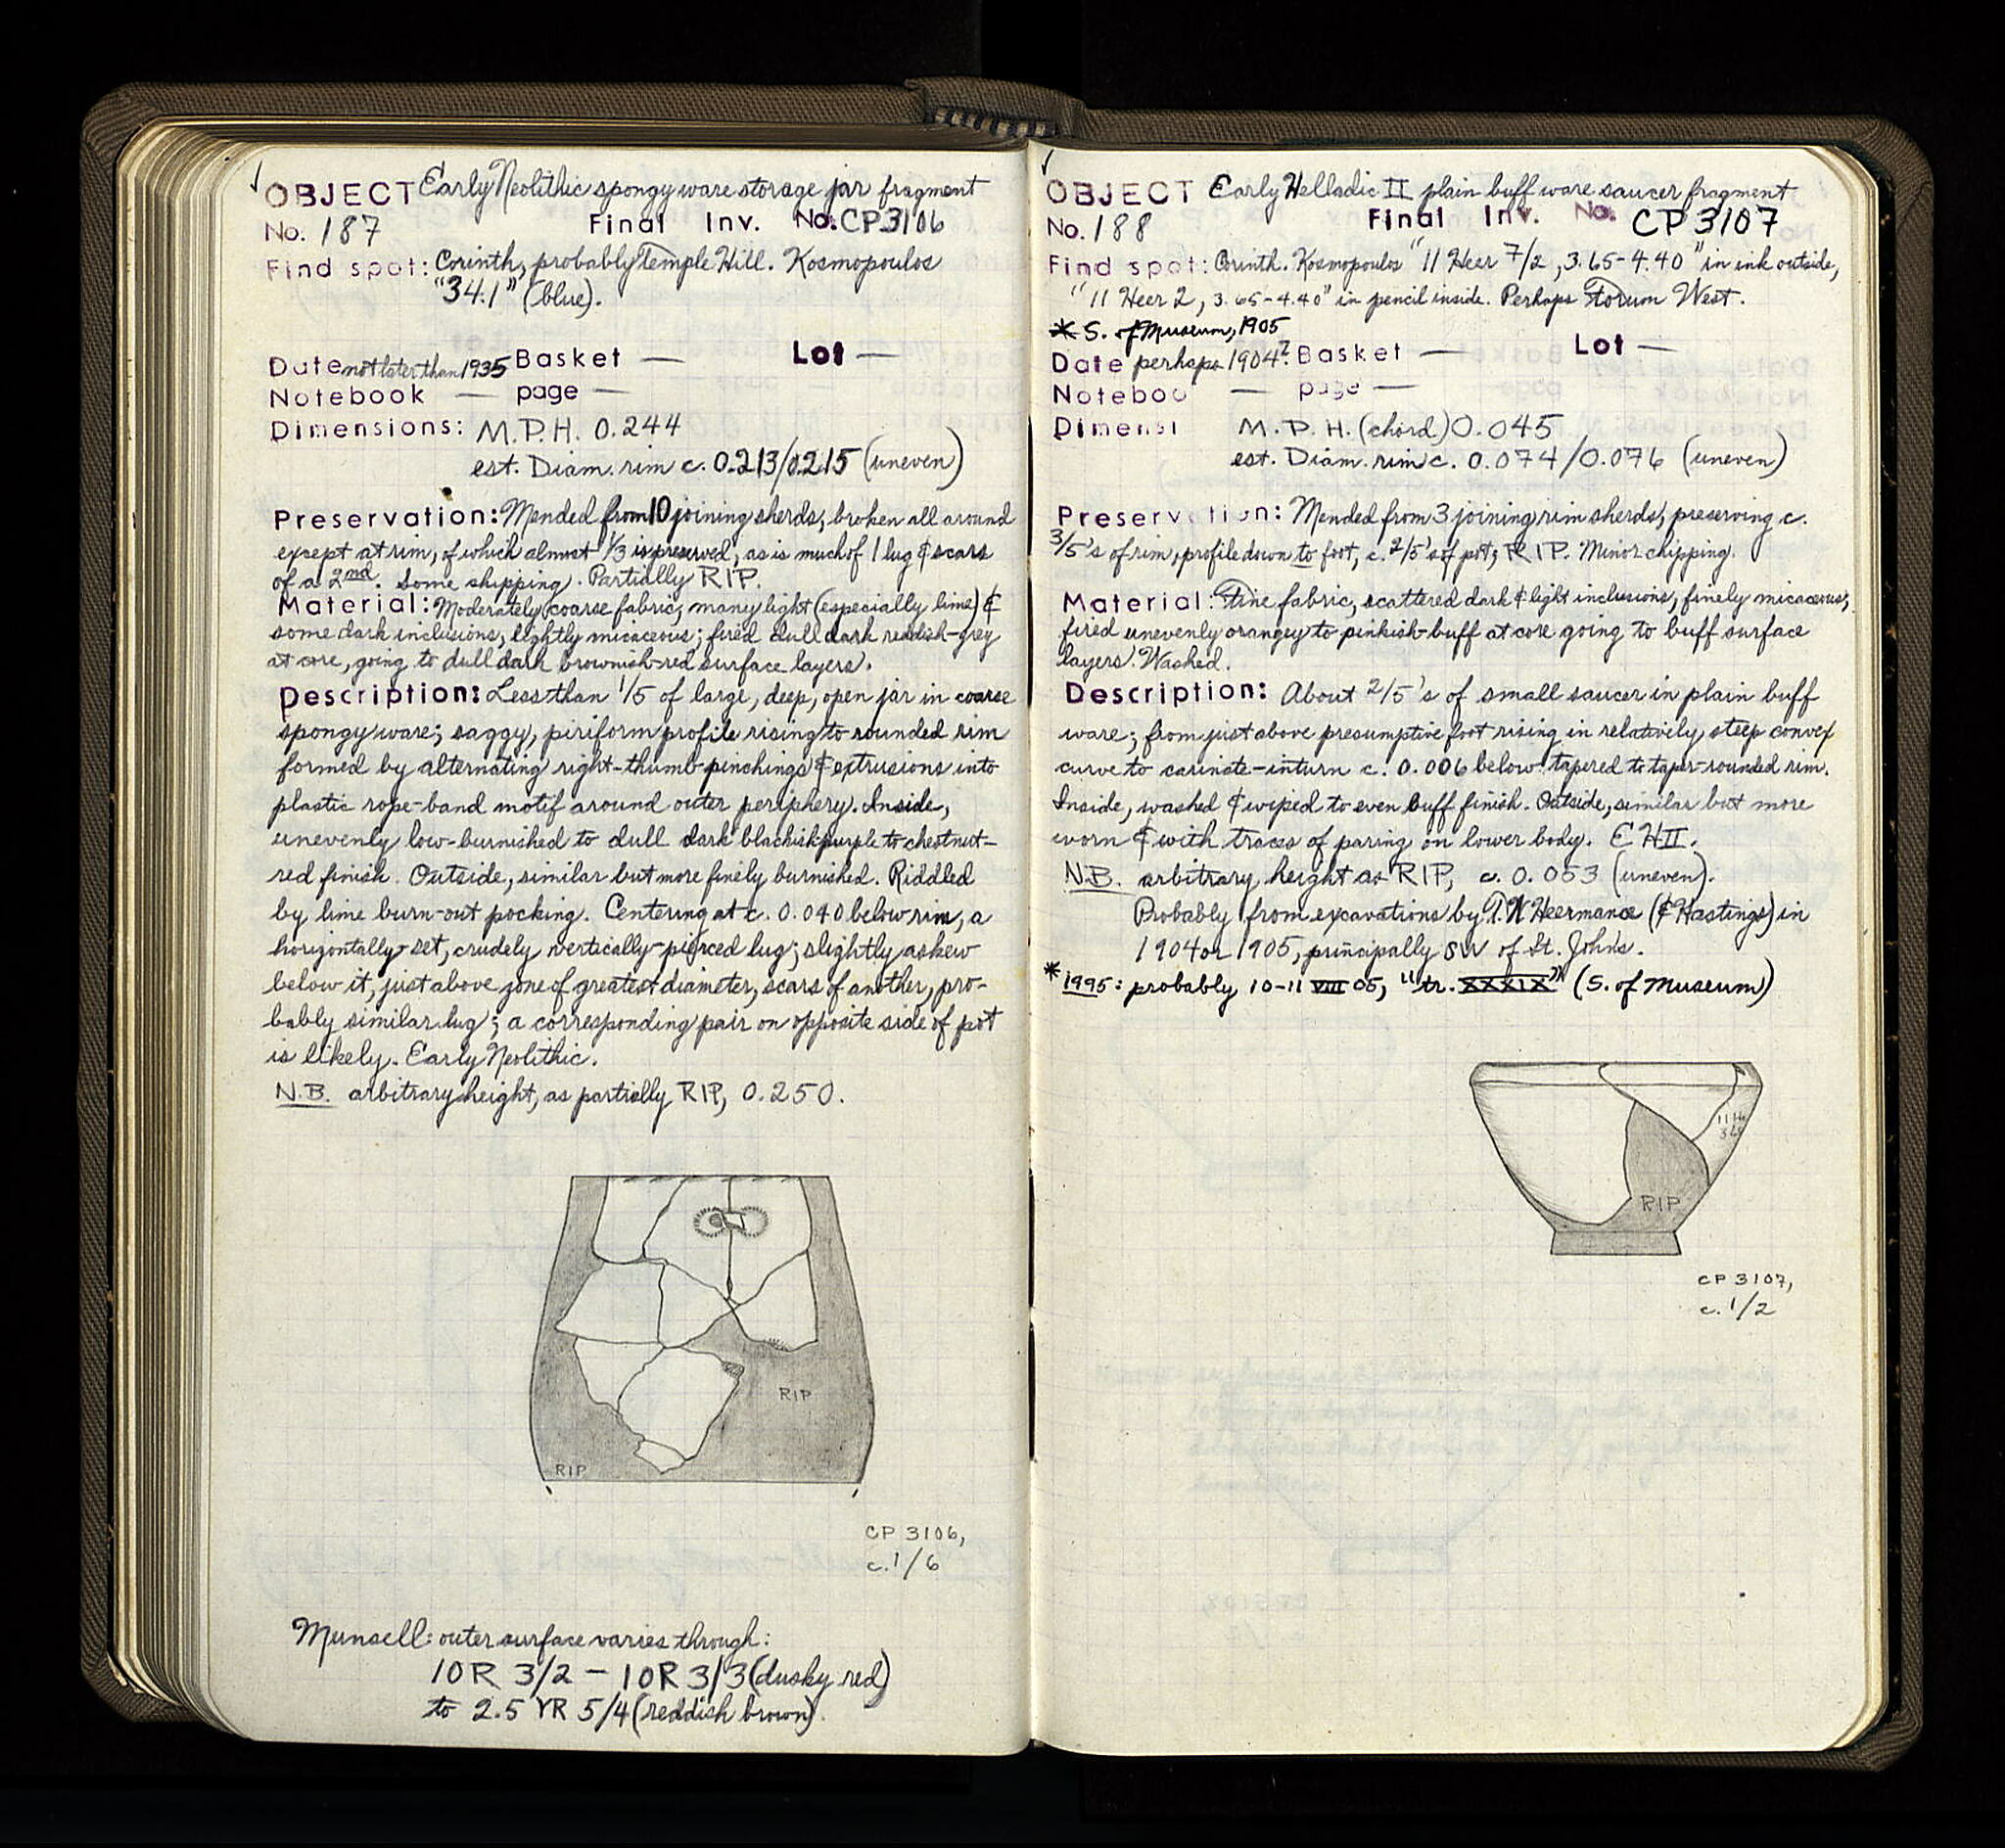 ✓
OBJECT Early Neolithic spongy ware storage jar fragment
No. 187 Final Inv. No. CP3106
Find spot: Corinth, probably Temple Hill. Kosmopoulos
"34.1" (blue).
Date not later than 1935 Basket — Lot —
Notebook — page —
Dimensions: M.P.H. 0.244
est. Diam. rim c. 0.213/0.215 (uneven)
Preservation: Mended from 10 joining sherds, broken all around
except at rim, of which almost 1/3 is preserved, as is much of 1 lug & scars
of a 2nd. Some chipping. Partially RIP.
Material: Moderately coarse fabric, many light (especially lime) &
some dark inclusions, lightly micaceous; fired dull dark reddish-grey
at core, going to dull dark brownish-red surface layers.
Description: Less than 1/5 of large, deep, open jar in coarse
spongy ware; saggy, piriform profile rising to rounded rim
formed by alternating right-thumb-pinchings & extrusions into
plastic rope-band motif around outer periphery. Inside,
unevenly low-burnished to dull dark blackish purple to chestnut-
red finish. Outside, similar but more finely burnished. Riddled
by lime burn-out pocking. Centering at c. 0.040 below rim, a
horizontally-set, crudely vertically-pierced lug; slightly askew
below it, just above zone of greatest diameter, scars of another, pro-
bably similar lug; a corresponding pair on opposite side of pot
is likely. Early Neolithic.
N.B. arbitrary height, as partially RIP, 0.250.
RIP
RIP
CP 3106,
c. 1/6
Munsell: outer surface varies through:
10R 3/2 – 10R 3/3 (dusky red)
to 2.5 YR 5/4 (reddish brown).
✓
OBJECT Early Helladic II plain buff ware saucer fragment
No. 188 Final Inv. No. CP 3107
Find spot: Corinth. Kosmopoulos "11 Heer 7/2, 3.65-4.40" in ink outside,
"11 Heer 2, 3.65-4.40" in pencil inside. Perhaps Forum West.
* S. of Museum, 1905
Date perhaps 1904?. Basket — Lot —
Noteboo — page —
Dimensi M.P.H. (chord) 0.045
est. Diam. rim c. 0.074/0.076 (uneven)
Preservation: Mended from 3 joining rim sherds, preserving c.
3/5's of rim, profile down to foot, c. 2/5's of pot; RIP. Minor chipping.
Material: Fine fabric, scattered dark & light inclusions, finely micaceous;
fired unevenly orangey to pinkish-buff at core going to buff surface
layers. Washed.
Description: About 2/5's of small saucer in plain buff
ware; from just above presumptive foot rising in relatively steep convex
curve to carinate-inturn c. 0.006 below tapered to taper-rounded rim.
Inside, washed & wiped to even buff finish. Outside, similar but more
worn & with traces of paring on lower body. EHII.
N.B. arbitrary height as RIP, c. 0.053 (uneven).
Probably from excavations by T.W Heermance (& Hastings) in
1904 or 1905, principally SW of St. John's.
* 1995: probably 10-11 VIII 05, "tr. XXXIX" (S. of Museum)
RIP
CP 3107,
c. 1/2